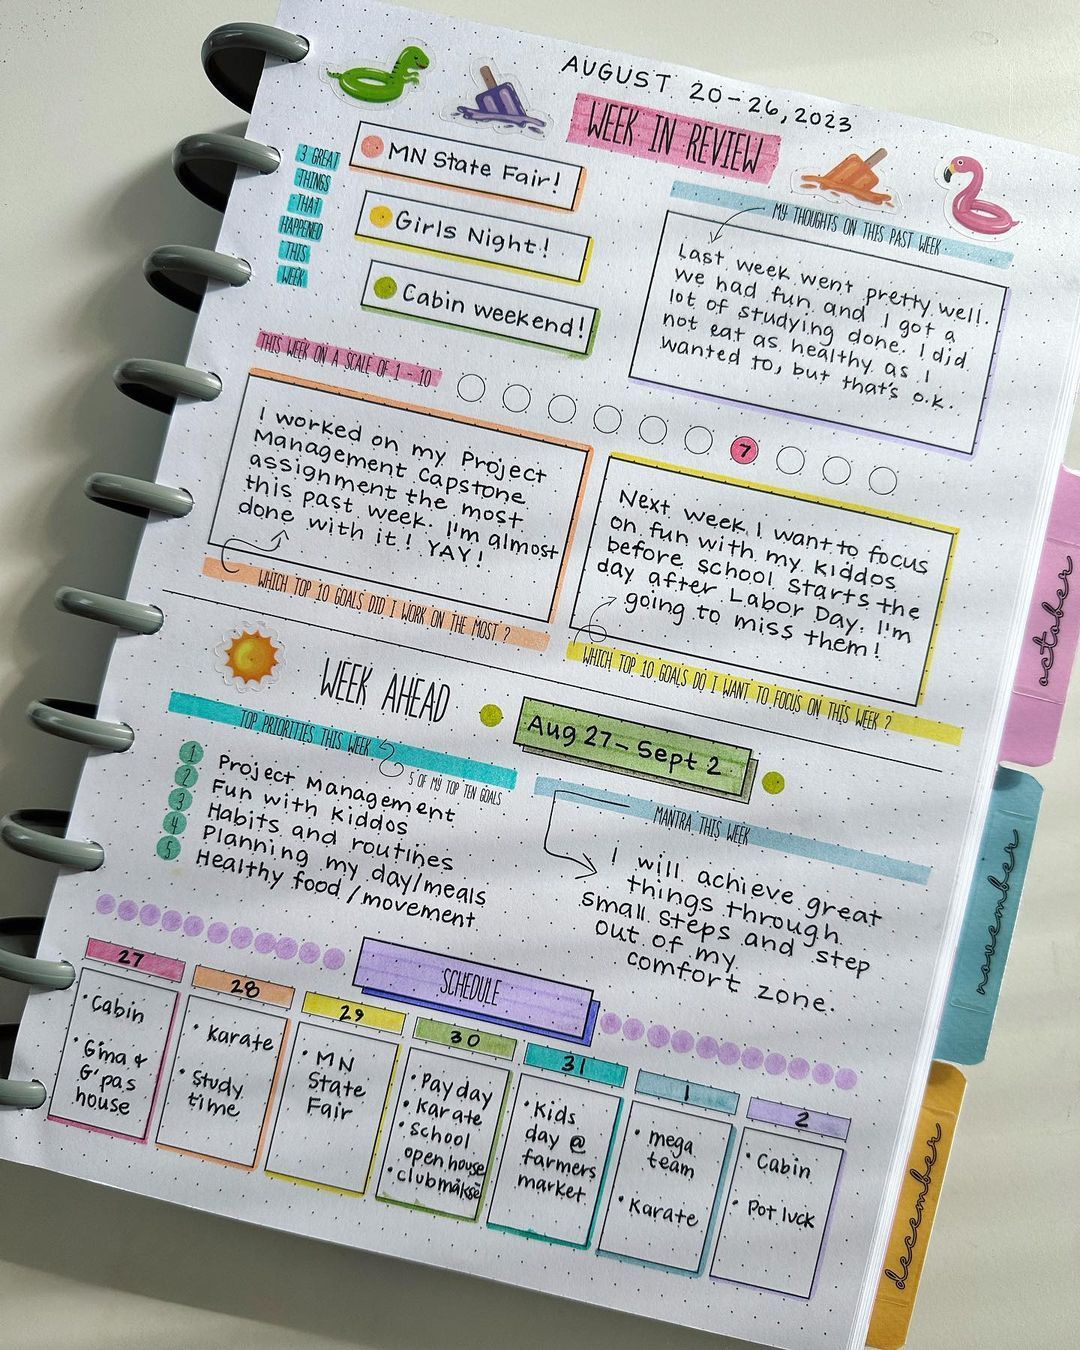 AUGUST 20-26, 2023
WEEK IN REVIEW
3 GREAT
THINGS
THAT
HAPPENED
THIS
WEEK
MN State Fair!
Girls Night!
Cabin weekend!
MY THOUGHTS ON THIS PAST WEEK
Last week went pretty well.
we had fun and I got a
lot of studying done. I did
not eat as healthy as I
wanted to, but that's o.k.
THIS WEEK ON A SCALE OF 1 - 10
7
I worked on my Project
Management Capstone
assignment the most
this past week. I'm almost
done with it! YAY!
WHICH TOP 10 GOALS DID I WORK ON THE MOST ?
Next week I want to focus
on fun with my kiddos
before school starts the
day after Labor Day. I'm
going to miss them!
WHICH TOP 10 GOALS DO I WANT TO FOCUS ON THIS WEEK ?
WEEK AHEAD
Aug 27- Sept 2
TOP PRIORITIES THIS WEEK
5 OF MY TOP TEN GOALS
1 Project Management
2 Fun with kiddos
3 Habits and routines
4 Planning my day/meals
5 Healthy food/movement
MANTRA THIS WEEK
I will achieve great
things through
small steps and step
out of my
comfort zone.
SCHEDULE
27
• Cabin
• G'ma &
G'pas
house
28
• Karate
• Study
time
29
• MN
State
Fair
30
• Pay day
• Karate
• School
open house
31
• Kids
day @
farmers
market
1
• mega
team
• Karate
2
• Cabin
• Pot luck
october
november
december